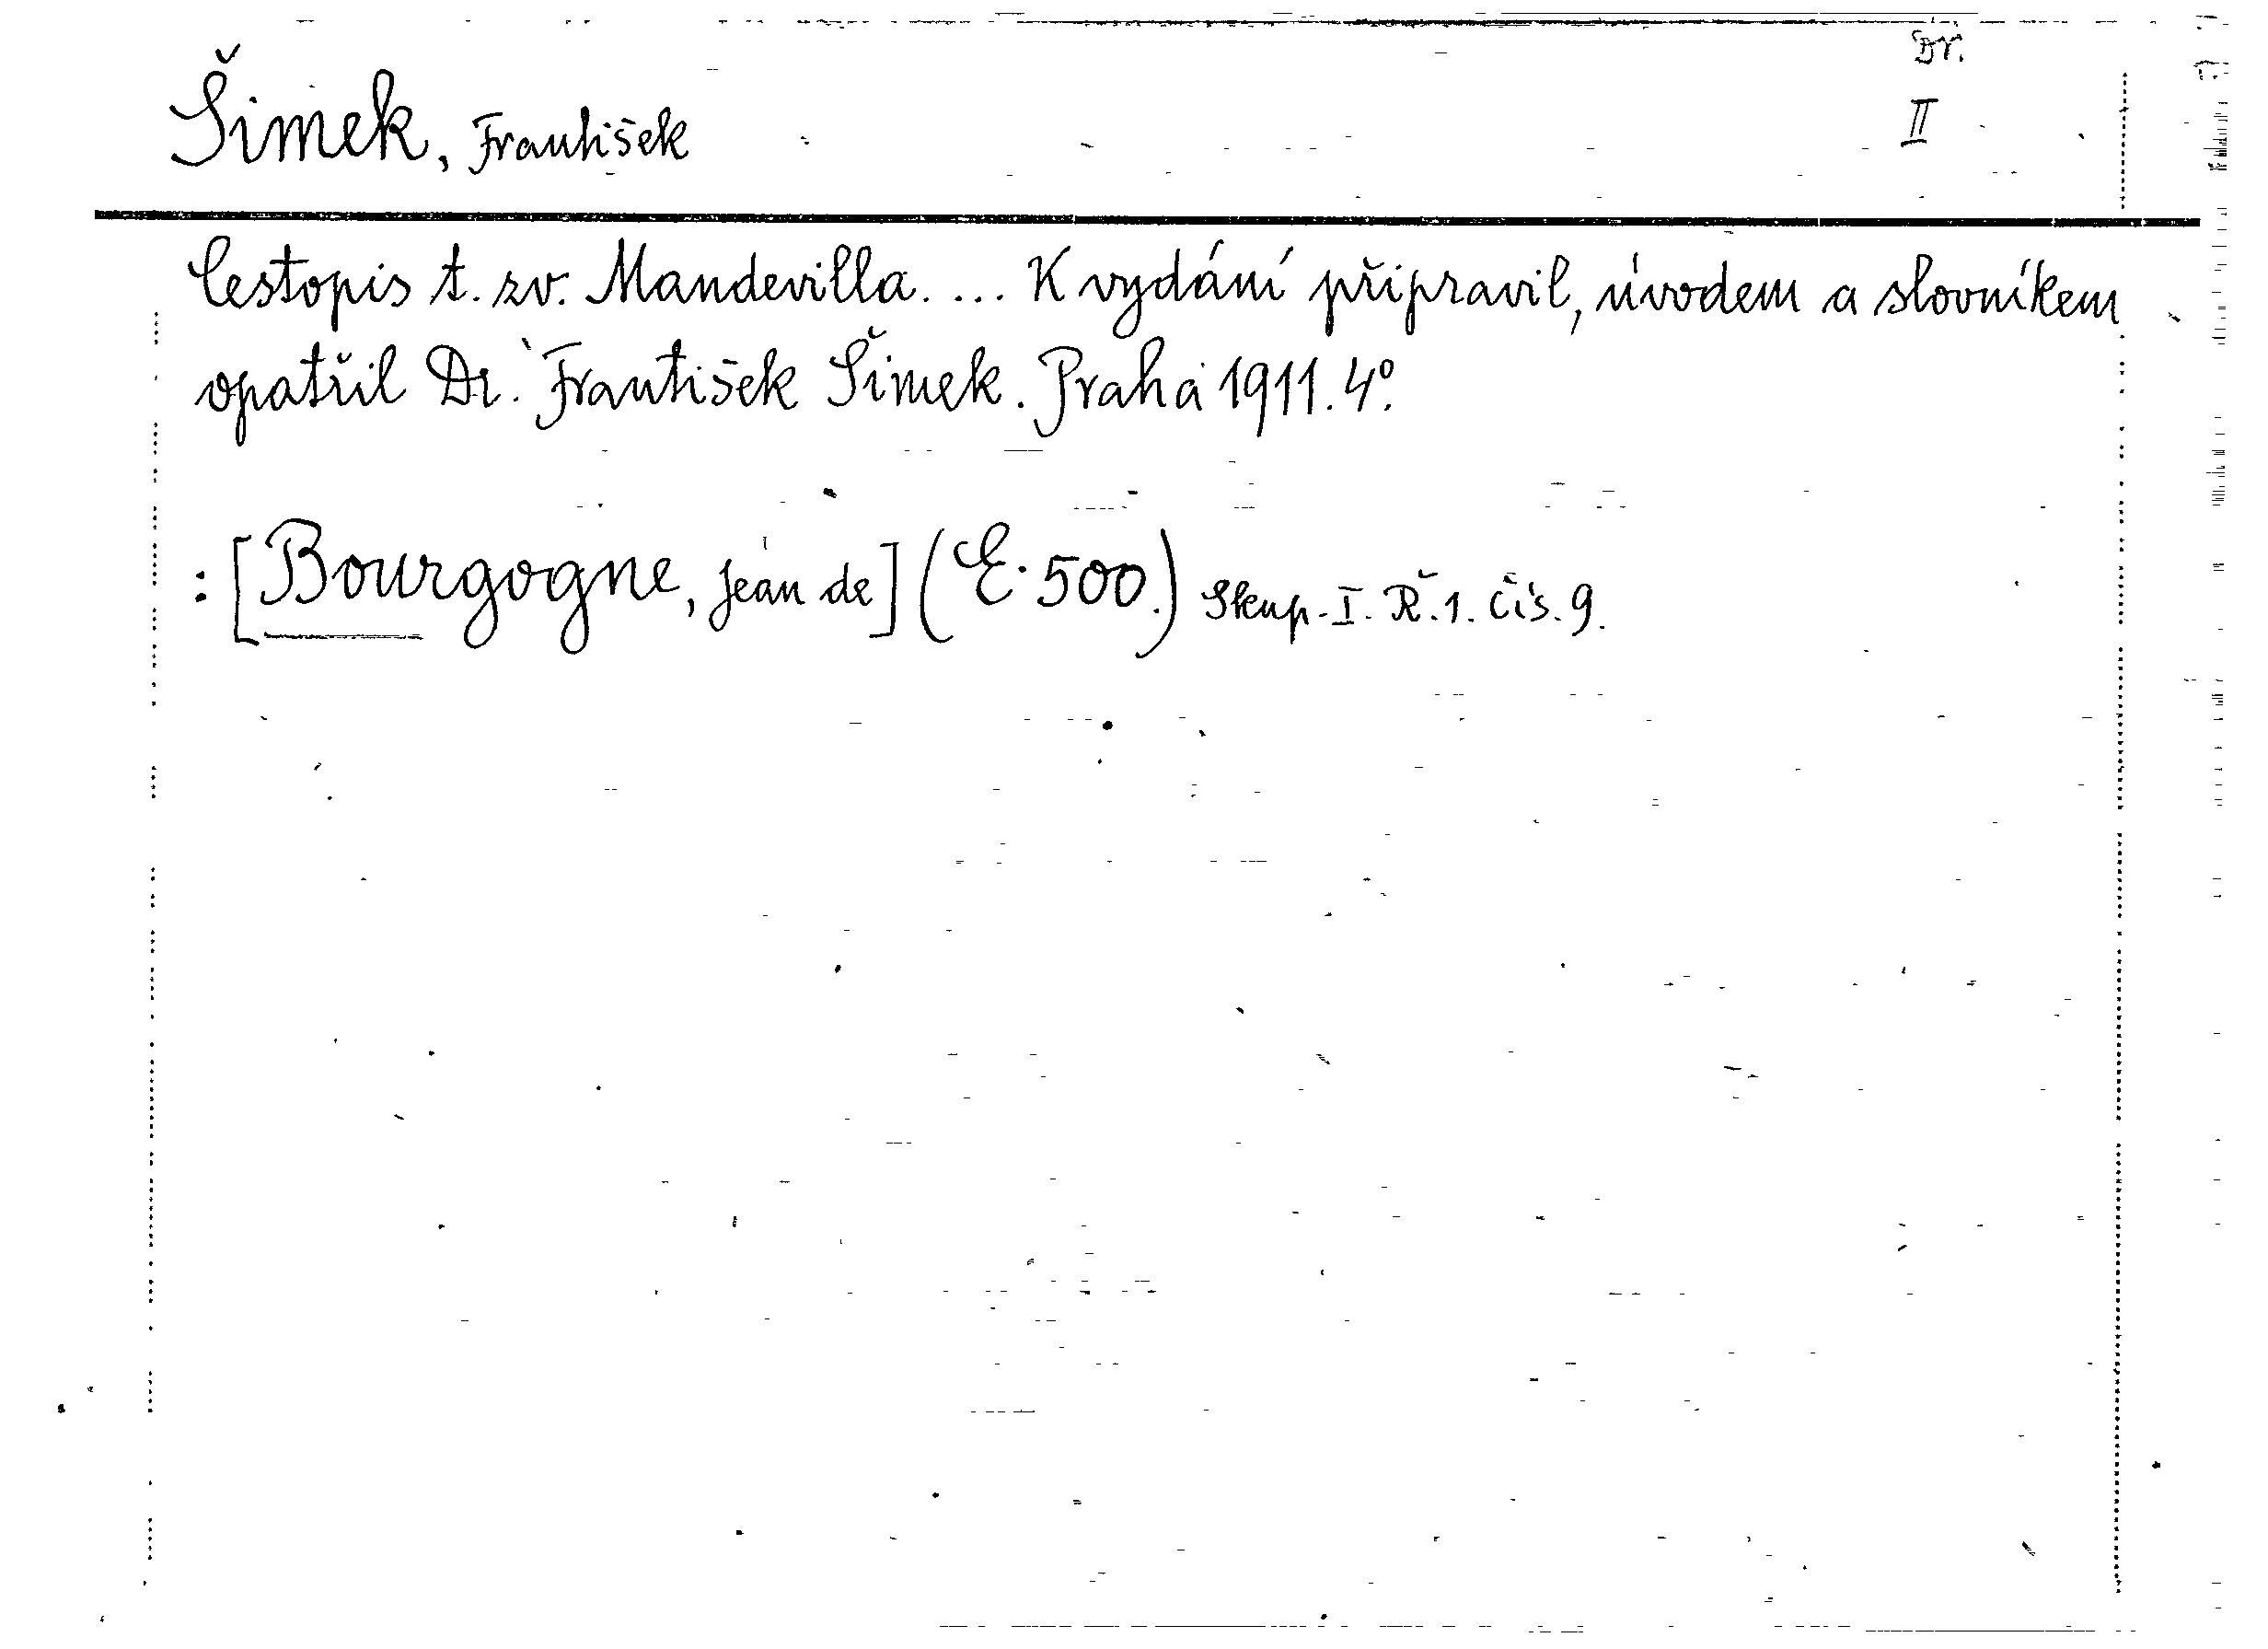 Dr.
Šimek, František II
Cestopis t. zv. Mandevilla. ... K vydání připravil, úvodem a slovníkem
opatřil Dr. František Šimek. Praha 1911. 4°.
: [Bourgogne, Jean de] (E. 500.) Skup. I. Ř. 1. čís. 9.